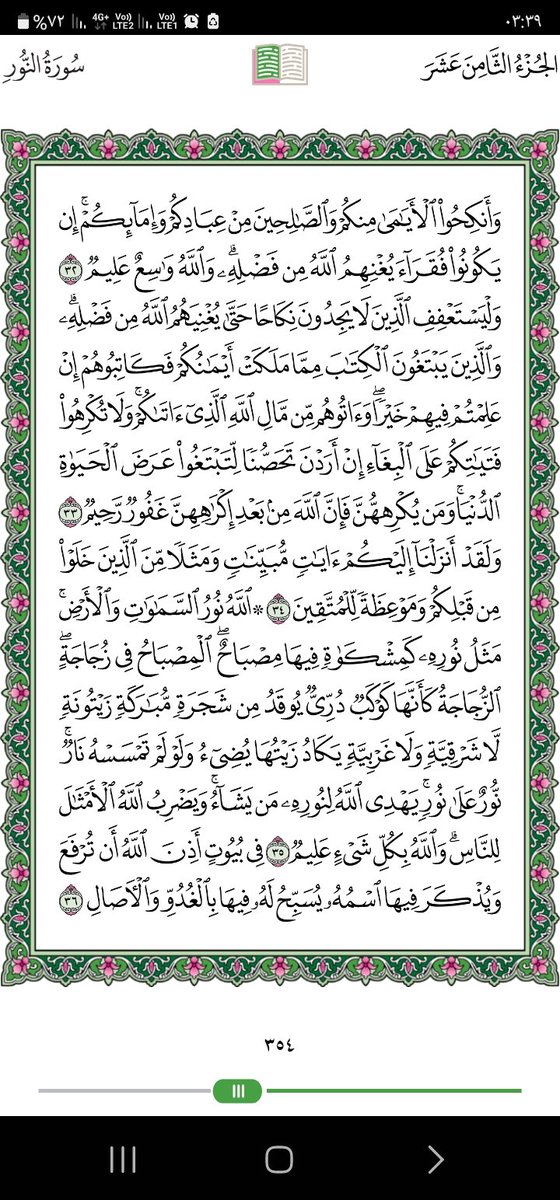 ٠٣:٣٩
Vo) LTE1 Vo) 4G+ LTE2 %٧٢
الجُزْءُ الثَّامِنَ عَشَرَ
سُورَةُ النُّورِ
وَأَنكِحُوا۟ ٱلْأَيَٰمَىٰ مِنكُمْ وَٱلصَّٰلِحِينَ مِنْ عِبَادِكُمْ وَإِمَآئِكُمْ ۚ إِن
يَكُونُوا۟ فُقَرَآءَ يُغْنِهِمُ ٱللَّهُ مِن فَضْلِهِۦ ۗ وَٱللَّهُ وَٰسِعٌ عَلِيمٌ ٣٢
وَلْيَسْتَعْفِفِ ٱلَّذِينَ لَا يَجِدُونَ نِكَاحًا حَتَّىٰ يُغْنِيَهُمُ ٱللَّهُ مِن فَضْلِهِۦ ۗ
وَٱلَّذِينَ يَبْتَغُونَ ٱلْكِتَٰبَ مِمَّا مَلَكَتْ أَيْمَٰنُكُمْ فَكَاتِبُوهُمْ إِنْ
عَلِمْتُمْ فِيهِمْ خَيْرًا ۖ وَءَاتُوهُم مِّن مَّالِ ٱللَّهِ ٱلَّذِىٓ ءَاتَىٰكُمْ ۚ وَلَا تُكْرِهُوا۟
فَتَيَٰتِكُمْ عَلَى ٱلْبِغَآءِ إِنْ أَرَدْنَ تَحَصُّنًا لِّتَبْتَغُوا۟ عَرَضَ ٱلْحَيَوٰةِ
ٱلدُّنْيَا ۚ وَمَن يُكْرِههُّنَّ فَإِنَّ ٱللَّهَ مِنۢ بَعْدِ إِكْرَٰهِهِنَّ غَفُورٌ رَّحِيمٌ ٣٣
وَلَقَدْ أَنزَلْنَآ إِلَيْكُمْ ءَايَٰتٍ مُّبَيِّنَٰتٍ وَمَثَلًا مِّنَ ٱلَّذِينَ خَلَوْا۟
مِن قَبْلِكُمْ وَمَوْعِظَةً لِّلْمُتَّقِينَ ٣٤ * ٱللَّهُ نُورُ ٱلسَّمَٰوَٰتِ وَٱلْأَرْضِ ۚ
مَثَلُ نُورِهِۦ كَمِشْكَوٰةٍ فِيهَا مِصْبَاحٌ ۖ ٱلْمِصْبَاحُ فِى زُجَاجَةٍ ۖ
ٱلزُّجَاجَةُ كَأَنَّهَا كَوْكَبٌ دُرِّىٌّ يُوقَدُ مِن شَجَرَةٍ مُّبَٰرَكَةٍ زَيْتُونَةٍ
لَّا شَرْقِيَّةٍ وَلَا غَرْبِيَّةٍ يَكَادُ زَيْتُهَا يُضِىٓءُ وَلَوْ لَمْ تَمْسَسْهُ نَارٌ ۚ
نُّورٌ عَلَىٰ نُورٍ ۗ يَهْدِى ٱللَّهُ لِنُورِهِۦ مَن يَشَآءُ ۚ وَيَضْرِبُ ٱللَّهُ ٱلْأَمْثَٰلَ
لِلنَّاسِ ۗ وَٱللَّهُ بِكُلِّ شَىْءٍ عَلِيمٌ ٣٥ فِى بُيُوتٍ أَذِنَ ٱللَّهُ أَن تُرْفَعَ
وَيُذْكَرَ فِيهَا ٱسْمُهُۥ يُسَبِّحُ لَهُۥ فِيهَا بِٱلْغُدُوِّ وَٱلْءَاصَالِ ٣٦
٣٥٤